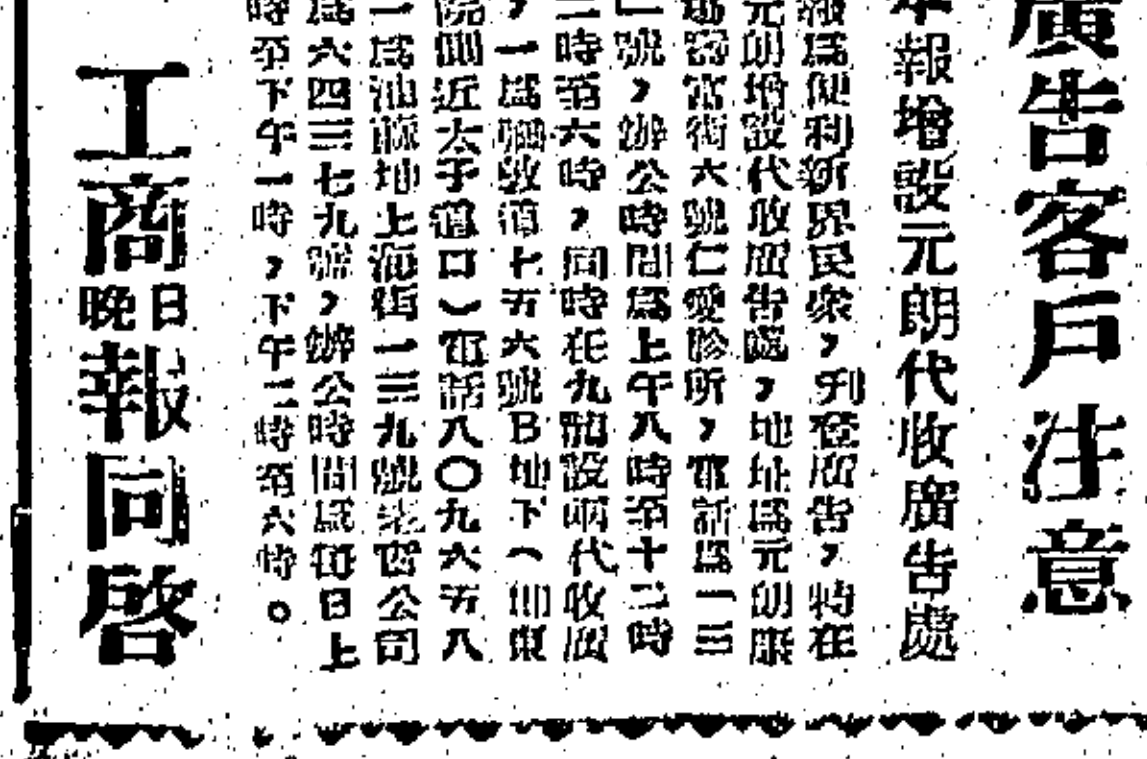 廣告客戶注意
本報增設元朗代收廣告處
報爲便利新界民衆,刋登廣告,特在
元朗增設代收廣告處,地址爲元朗康
富街六號仁愛診所,電話爲一三
一號,辦公時間爲上午八時至十二時
二時至六時,同時在九龍設兩代收廣
,一爲彌敦道七五六號B地下(即東
院側近太子道口)電話八〇九六五八
一爲油蔴地上海街一三九號 公司
爲六四三七九號,辦公時間爲每日上
時至下午一時,下午二時至六時。
工商日晚報同啓